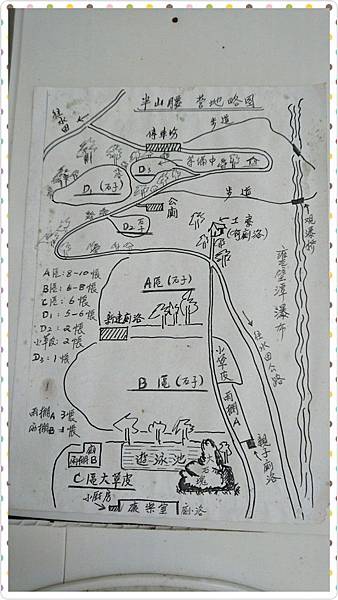 半山腰 營地略圖
往水田
停車場
步道
D3
準備中
D1(石子)
步道
公廁
D2 石子
土寮
(有廁浴)
觀瀑橋
雍壁潭瀑布
A區:8-10帳
B區:6-8帳
C區 6帳
D1:5-6帳
D2:2帳
小草皮:2帳
D3:1帳
A區(石子)
新建廁浴
往水田公路
小草皮
B區(石子)
雨棚A 3帳
雨棚B 1帳
雨棚A
親子廁浴
廚
雨棚B
遊泳池
大石塊
C區大草皮
小廚房
康樂室
廁浴